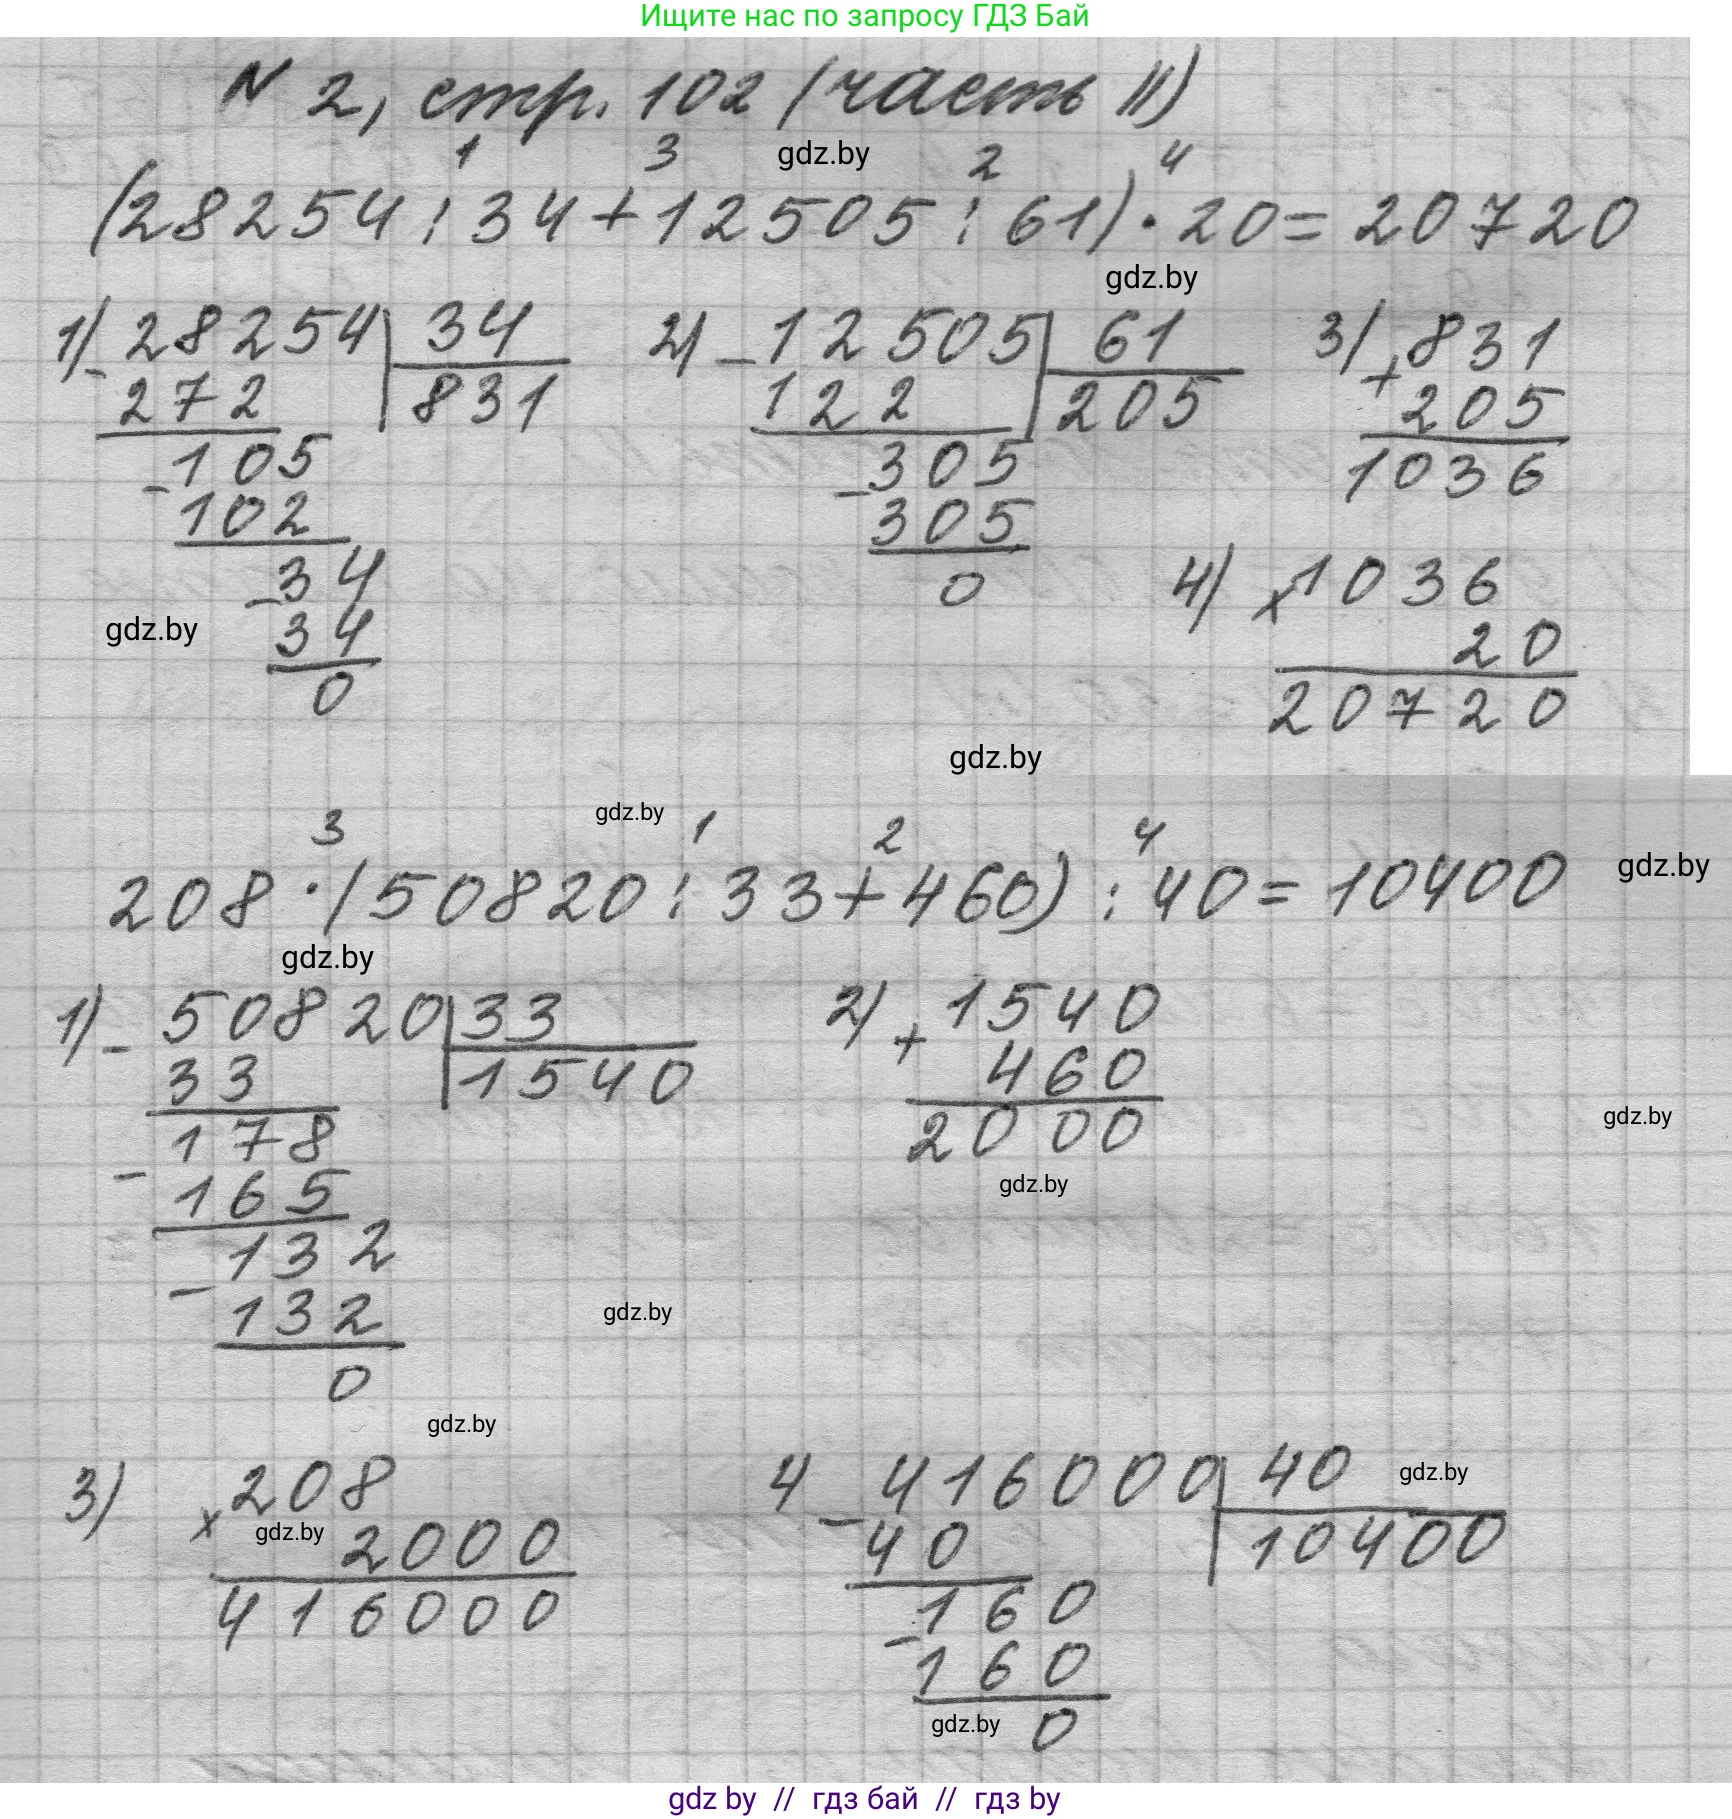 Ищите нас по запросу ГДЗ Бай
N 2, стр. 102 (часть II)
1 3 gdz.by 2 4
(28254 : 34 + 12505 : 61) · 20 = 20720
gdz.by
1) - 28254 | 34 2) - 12505 | 61 3) + 831
272 831 122 205 205
- 105 - 305 1036
102 305
- 34 0 4) x 1036
gdz.by 34 20
0 20720
gdz.by
3 gdz.by 1 2 4
208 · (50820 : 33 + 460) : 40 = 10400 gdz.by
gdz.by
1) - 50820 | 33 2) + 1540
33 1540 460
- 178 2000 gdz.by
165 gdz.by
- 132
132 gdz.by
0
gdz.by
3) x 208 4 - 416000 | 40 gdz.by
gdz.by 2000 40 10400
416000 - 160
160
gdz.by 0
gdz by // гдз бай // гдз by